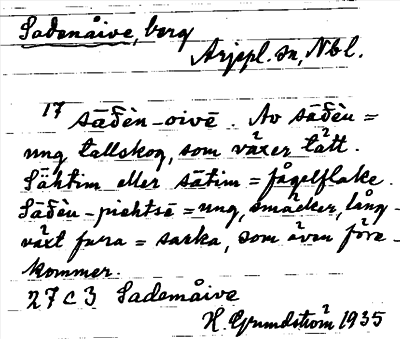 Sademåive, berg
Arjepl. sn, Nbl.
17 sāδèn-oivē. Av sāδèu =
ung tallskog, som växer tätt.
Sāhtim eller sātim = fågelflake.
Sāδèu-piehtsē = ung, smäcker, lång-
växt fura = sarka, som även före-
kommer.
27 C 3 Sademåive
H. Grundström 1935